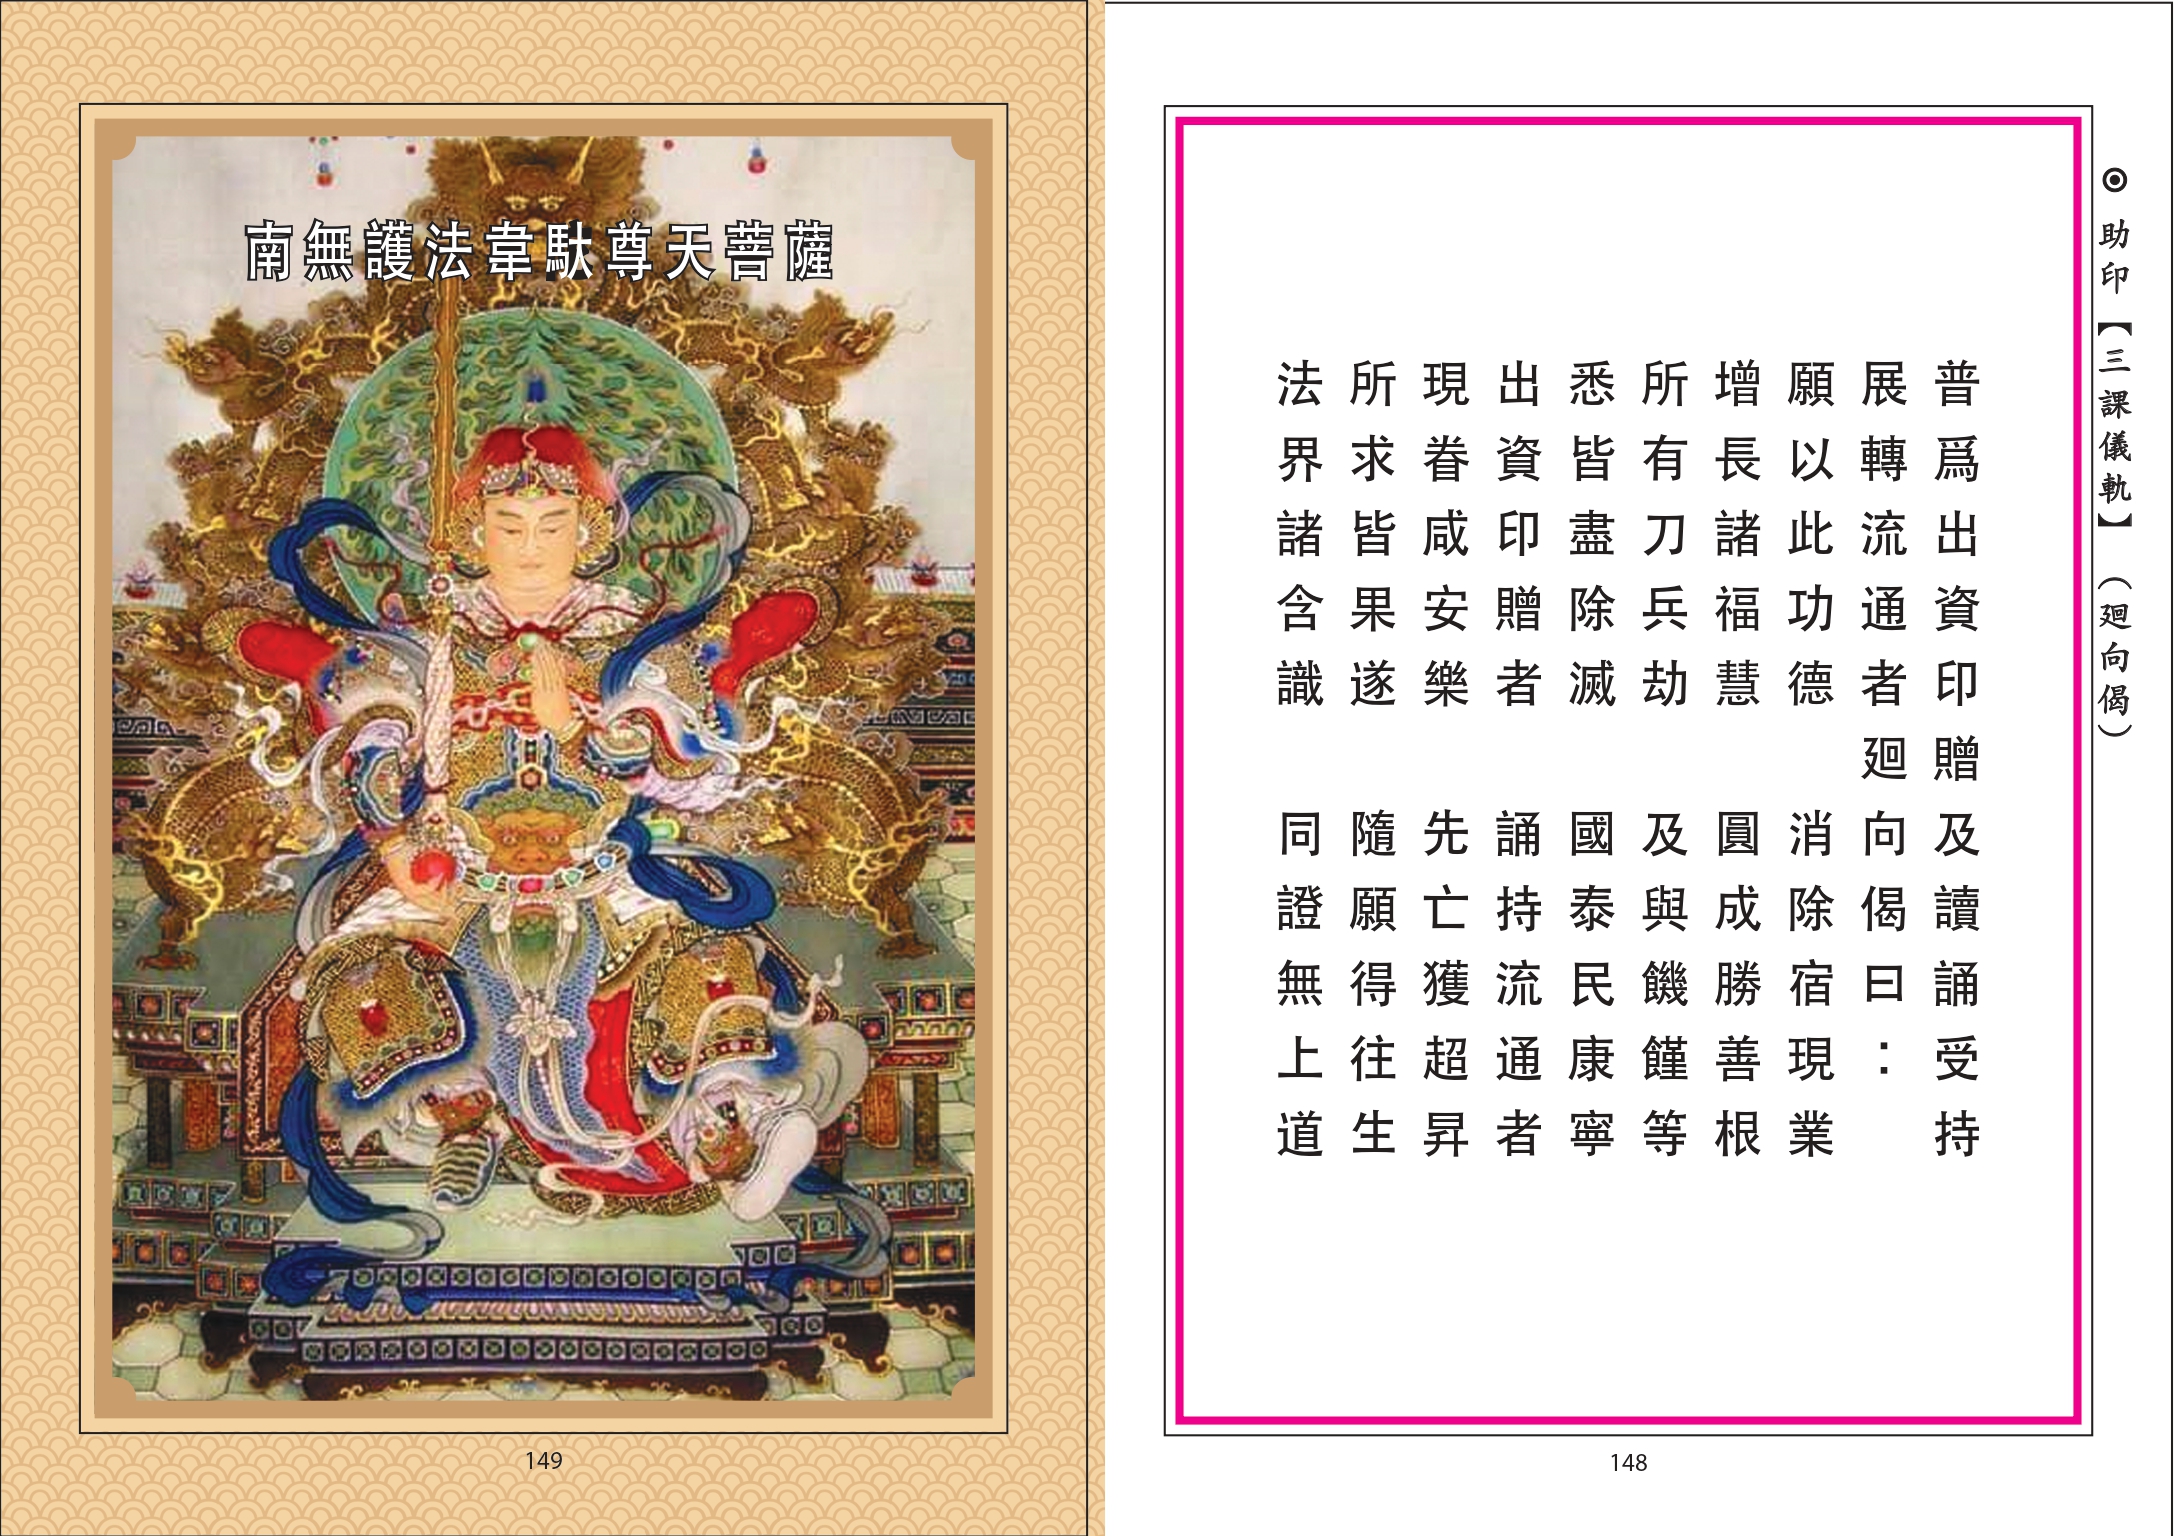 ◉ 助印【三課儀軌】（廻向偈）
普爲出資印贈及讀誦受持
展轉流通者廻向偈曰：
願以此功德 消除宿現業
增長諸福慧 圓成勝善根
所有刀兵劫 及與饑饉等
悉皆盡除滅 國泰民康寧
出資印贈者 誦持流通者
現眷咸安樂 先亡獲超昇
所求皆果遂 隨願得往生
法界諸含識 同證無上道
148
南無護法韋馱尊天菩薩
149